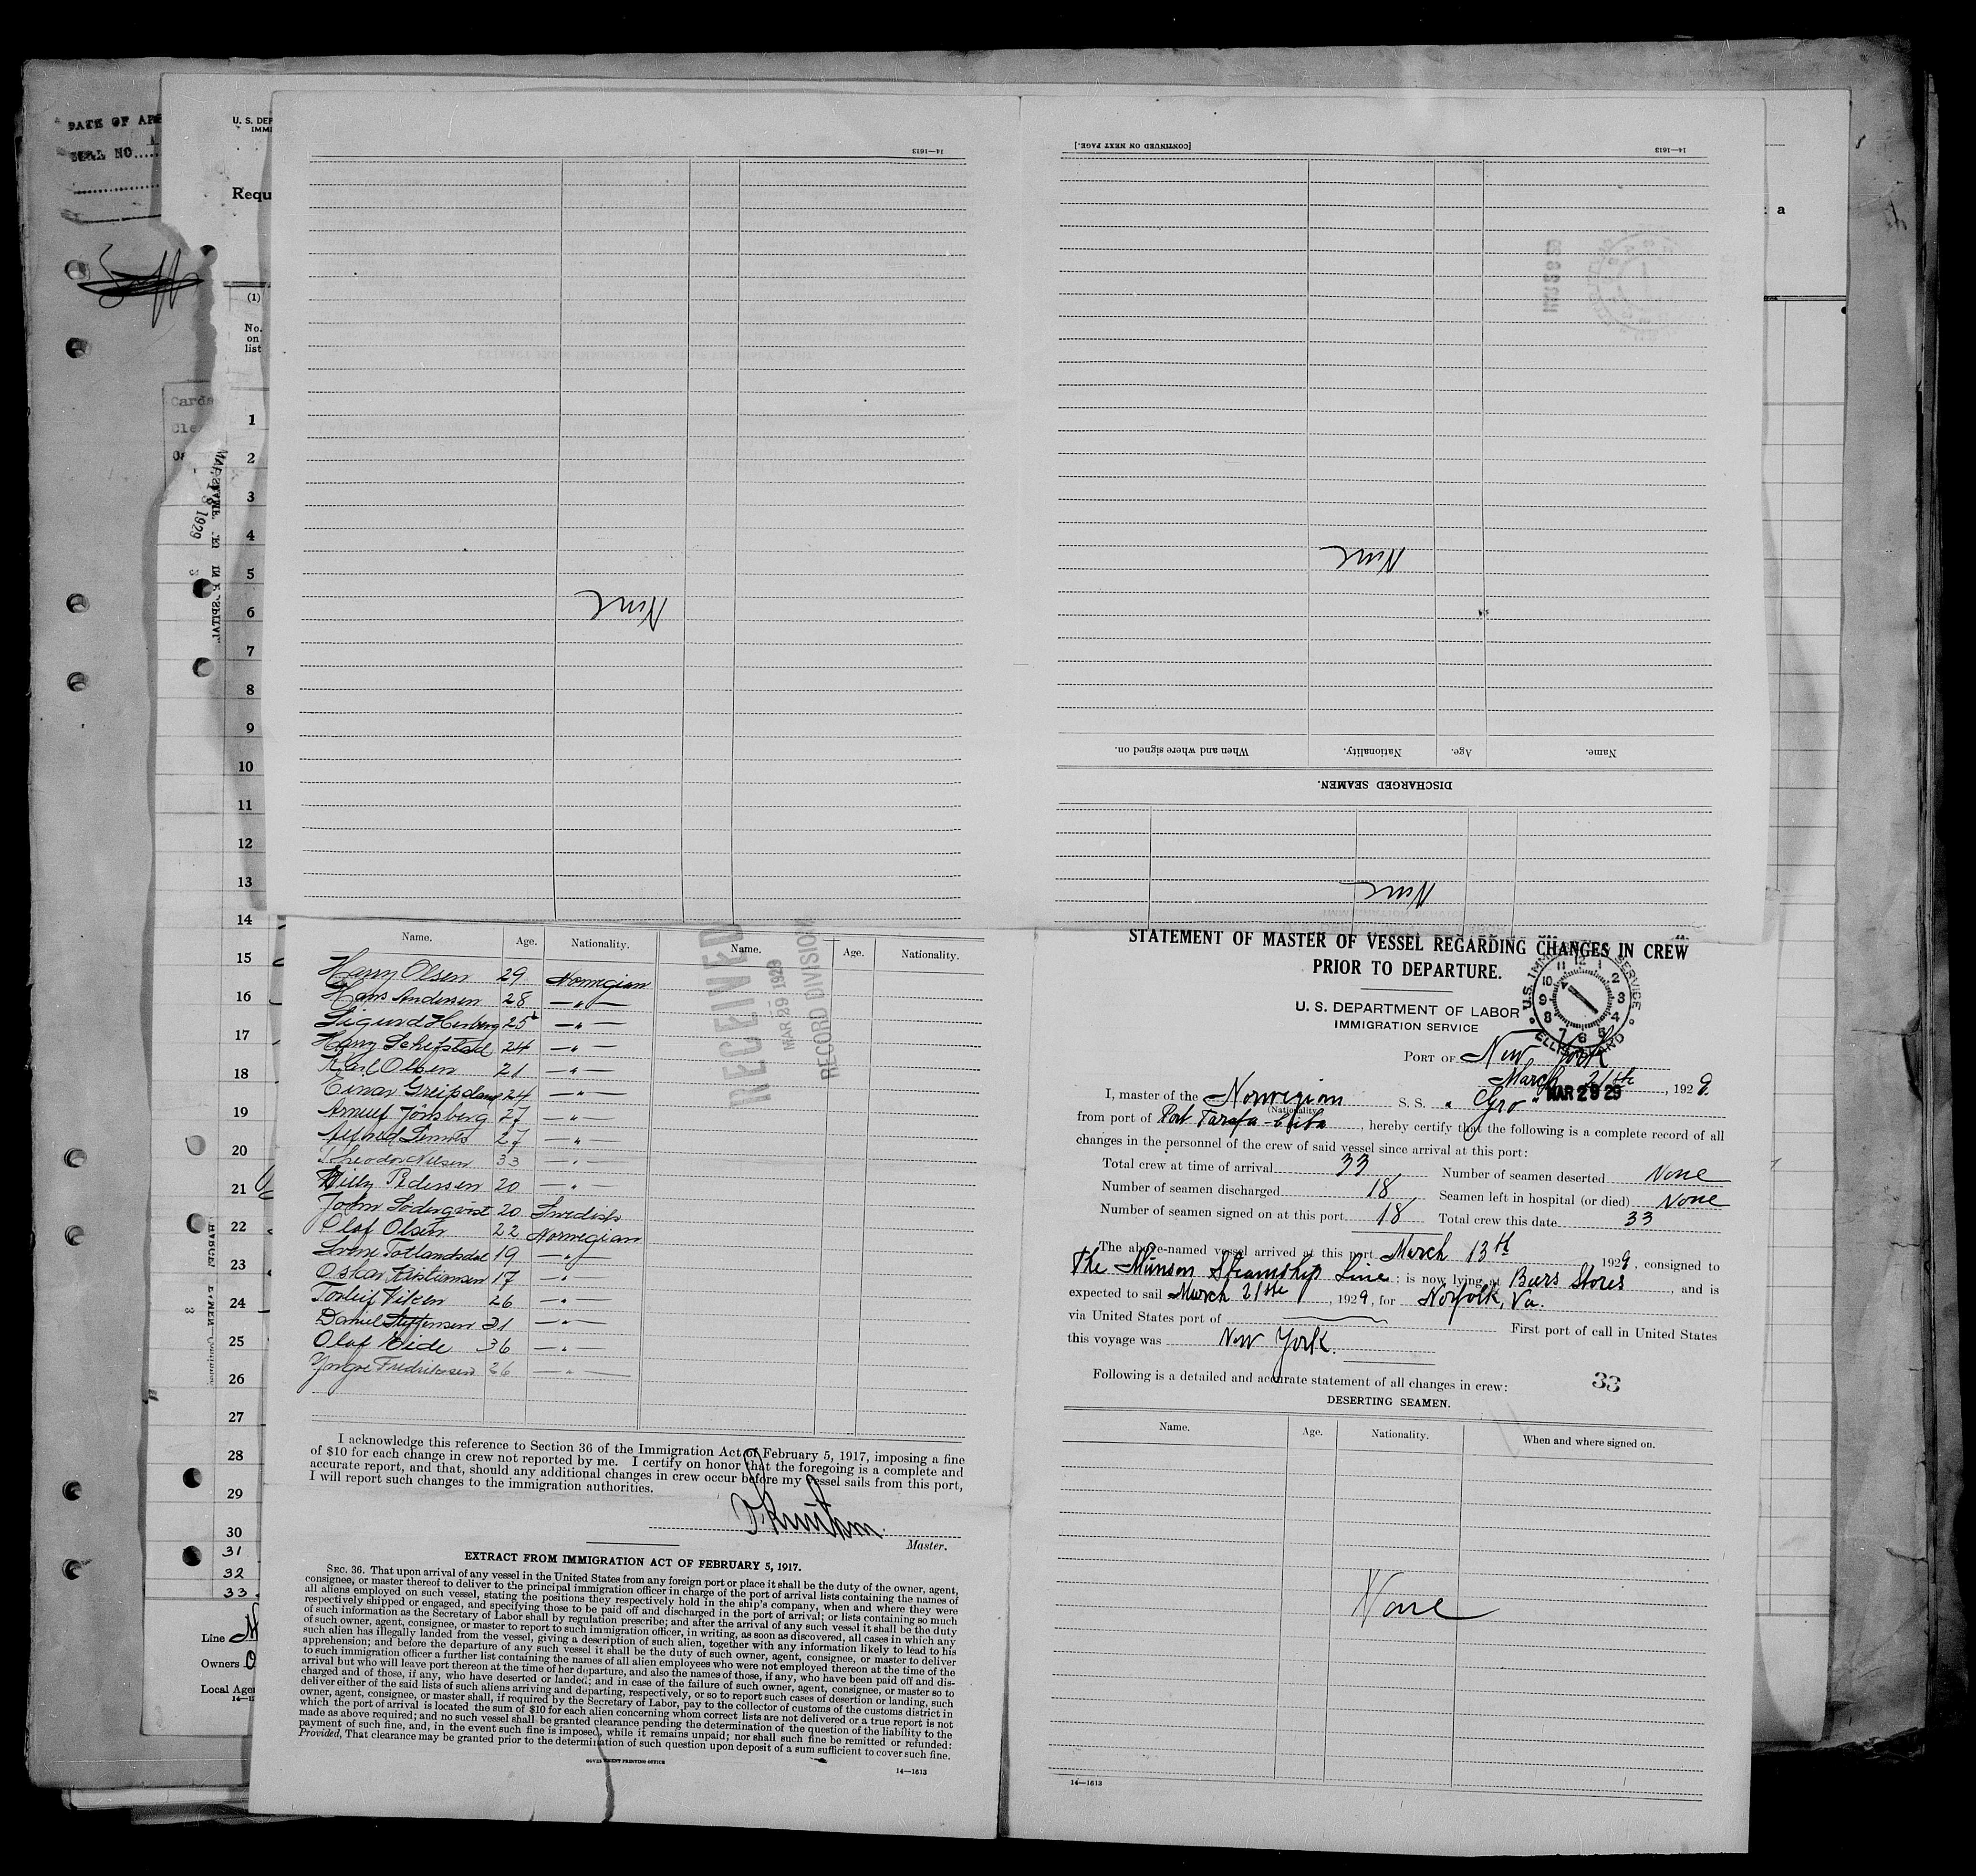 DATE OF
SERL NO.....
U. S. DEP
IMMI
Requ
(1)
No.
on
list
Cards
Cle
1
2
3
4
5
6
7
8
9
10
11
12
13
14
15
16
17
18
19
20
21
22
23
24
25
26
27
28
29
30
31
32
33
Line
Owners
Local Agen
a
14—1613
None
[CONTINUED ON NEXT PAGE.]
14—1613
None
When and where signed on. Nationality. Age. Name.
DISCHARGED SEAMEN.
None
Name. Age. Nationality. Name. Age. Nationality.
Harry Olsen 29 Norwegian
Hans Andersen 28 —"—
Sigurd Hesberg 25 —"—
Harry 24 —"—
Karl Olsen 21 —"—
Einar 24 —"—
Arnulf Jönsberg 27 —"—
Alfred 27 —"—
Theodor Nilsen 33 —"—
Willy Pedersen 20 —"—
John Söderqvist 20 Swedish
Olaf Olsen 22 Norwegian
Totlandsdal 19 —"—
Oskar Kristiansen 17 —"—
Torleif 26 —"—
Daniel Steffensen 21 —"—
Olaf Eide 36 —"—
Yngve Fredriksen 26 —"—
RECEIVED
MAR 29 1929
RECORD DIVISION
I acknowledge this reference to Section 36 of the Immigration Act of February 5, 1917, imposing a fine
of $10 for each change in crew not reported by me. I certify on honor that the foregoing is a complete and
accurate report, and that, should any additional changes in crew occur before my vessel sails from this port,
I will report such changes to the immigration authorities.
Master.
EXTRACT FROM IMMIGRATION ACT OF FEBRUARY 5, 1917.
SEC. 36. That upon arrival of any vessel in the United States from any foreign port or place it shall be the duty of the owner, agent,
consignee, or master thereof to deliver to the principal immigration officer in charge of the port of arrival lists containing the names of
all aliens employed on such vessel, stating the positions they respectively hold in the ship's company, when and where they were
respectively shipped or engaged, and specifying those to be paid off and discharged in the port of arrival; or lists containing so much
of such information as the Secretary of Labor shall by regulation prescribe; and after the arrival of any such vessel it shall be the duty
of such owner, agent, consignee, or master to report to such immigration officer, in writing, as soon as discovered, all cases in which any
such alien has illegally landed from the vessel, giving a description of such alien, together with any information likely to lead to his
apprehension; and before the departure of any such vessel it shall be the duty of such owner, agent, consignee, or master to deliver
to such immigration officer a further list containing the names of all alien employees who were not employed thereon at the time of the
arrival but who will leave port thereon at the time of her departure, and also the names of those, if any, who have been paid off and dis-
charged and of those, if any, who have deserted or landed; and in case of the failure of such owner, agent, consignee, or master so to
deliver either of the said lists of such aliens arriving and departing, respectively, or so to report such cases of desertion or landing, such
owner, agent, consignee, or master shall, if required by the Secretary of Labor, pay to the collector of customs of the customs district in
which the port of arrival is located the sum of $10 for each alien concerning whom correct lists are not delivered or a true report is not
made as above required; and no such vessel shall be granted clearance pending the determination of the question of the liability to the
payment of such fine, and, in the event such fine is imposed, while it remains unpaid; nor shall such fine be remitted or refunded:
Provided, That clearance may be granted prior to the determination of such question upon deposit of a sum sufficient to cover such fine.
GOVERNMENT PRINTING OFFICE
14—1613
STATEMENT OF MASTER OF VESSEL REGARDING CHANGES IN CREW
PRIOR TO DEPARTURE.
U. S. DEPARTMENT OF LABOR
IMMIGRATION SERVICE
U.S. IMMIGRATION SERVICE
ELLIS ISLAND
MAR 29 29
PORT OF New York
March 21th, 1929.
I, master of the Norwegian S. S. "Gro"
(Nationality)
from port of Port Tarafa-Cuba, hereby certify that the following is a complete record of all
changes in the personnel of the crew of said vessel since arrival at this port:
Total crew at time of arrival 33 Number of seamen deserted None
Number of seamen discharged 18 Seamen left in hospital (or died) None
Number of seamen signed on at this port 18 Total crew this date 33
The above-named vessel arrived at this port March 13th 1929, consigned to
The Munson Steamship Line; is now lying at Beers Stores, and is
expected to sail March 21th, 1929, for Norfolk, Va.
via United States port of First port of call in United States
this voyage was New York.
Following is a detailed and accurate statement of all changes in crew:
33
DESERTING SEAMEN.
Name. Age. Nationality. When and where signed on.
None
14—1613